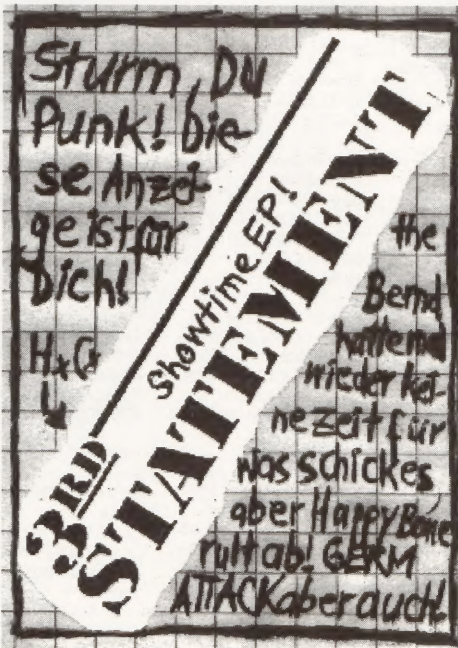 Sturm, Du
Punk! Die-
se Anzei-
ge ist für
Dich!
HxCx
3RD
STATEMENT
Showtime EP!
the
Bernd
hattema
wieder kei-
ne zeit für
was schickes
aber Happy Bone
rult ab! GERM
ATTACK aber auch!